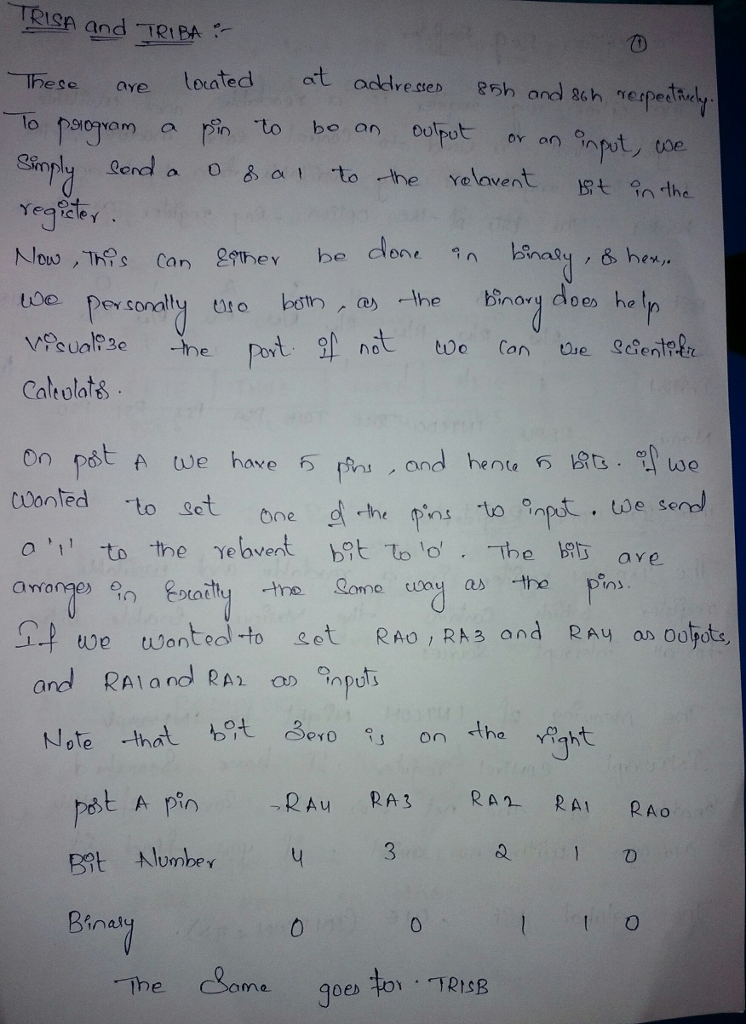 TRISA and TRIBA :-
①
These are located at addresses 85h and 86h respectively.
To program a pin to be an output or an input, we
Simply Send a 0 & a 1 to the relavent Bit in the
register.
Now, This can Either be done in binary, & hex,.
we personally use both, as the binary does help
visualize the port. if not we can use scientific
Calculator.
On port A we have 5 pins, and hence 5 bits. if we
wanted to set one of the pins to input. we send
a '1' to the relavent bit To '0'. The bits are
arranges in Exactly the Same way as the pins.
If we wanted to set RA0, RA3 and RA4 as outputs,
and RA1 and RA2 as inputs
Note that bit Zero is on the right
port A pin RA4 RA3 RA2 RA1 RA0
Bit Number 4 3 2 1 0
Binary 0 0 1 1 0
The Same goes for TRISB